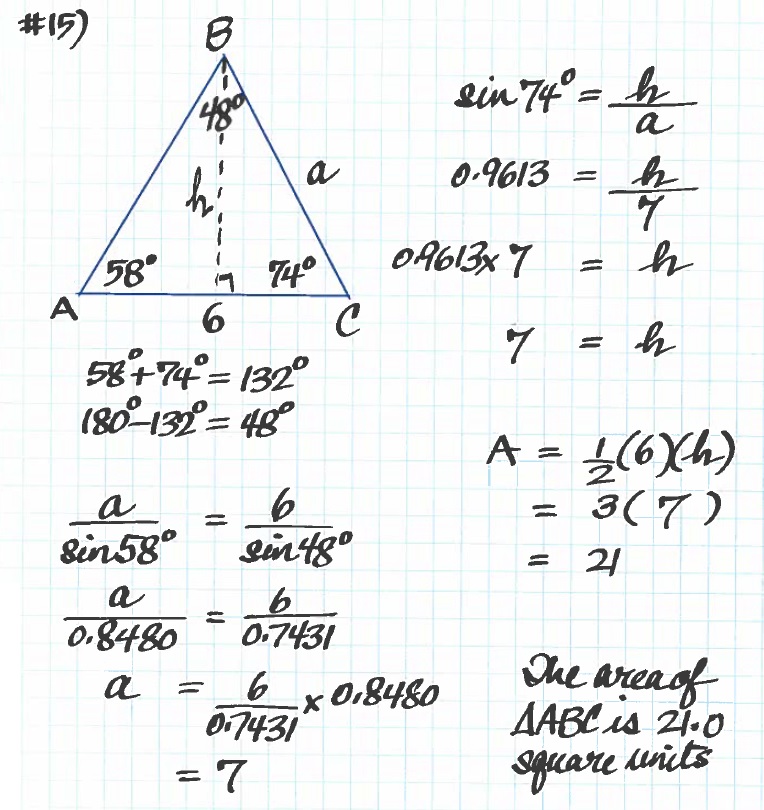 #15)
B
48°
h
a
58°
74°
A
6
C
58°+74°=132°
180°-132°=48°
a/sin58° = 6/sin48°
a/0.8480 = 6/0.7431
a = 6/0.7431 x 0.8480
= 7
sin 74° = h/a
0.9613 = h/7
0.9613x 7 = h
7 = h
A = 1/2(6)(h)
= 3(7)
= 21
The area of
ΔABC is 21.0
square units